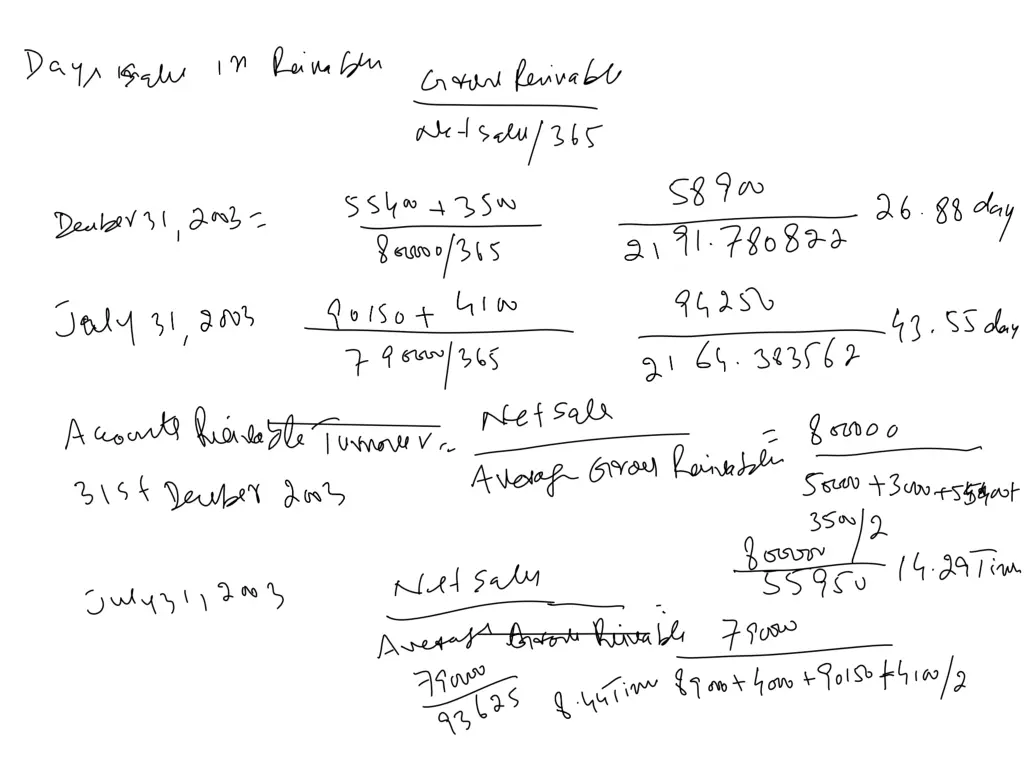 Days sales in Reivablen
Gross Reivable
Net sales/365
Deember 31, 2003 =
55400 + 3500
800000/365
58900
2191.780822
26.88 day
July 31, 2003
90150 + 4100
790000/365
94250
2164.383562
43.55 day
Accounts Reivable Turnover =
Net Sale
Average Gross Reivable
=
800000
50000 + 3000 + 55400 +
3500/2
31st Deember 2003
800000
55950
14.29 Tim
July 31, 2003
Net sales
Average Gross Reivable
790000
89000 + 4000 + 90150 + 4100/2
790000
93625
8.44 Tim